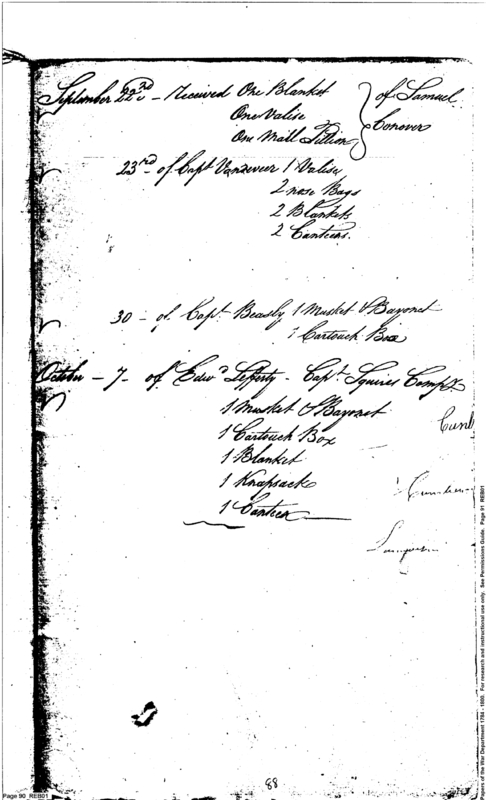 September 22nd - Received One Blanket } of Samuel
One Valise Conover
One Maill Pillion
23rd - of Capt Vanzeveer 1 Valise
2 nose Bags
2 Blankets
2 Canteens.
30 - of Capt Beasly 1 Musket & Bayonet
1 Cartouch Box
October - 7 - of Edwd Lefferty - Capt Squires Compy
1 Musket & Bayonet
1 Cartouch Box
1 Blanket
1 Knapsack
1 Canteen
88
Page 90_REB01
Papers of the War Department 1784 - 1800. For research and instructional use only. See Permissions Guide. Page 91 REB01